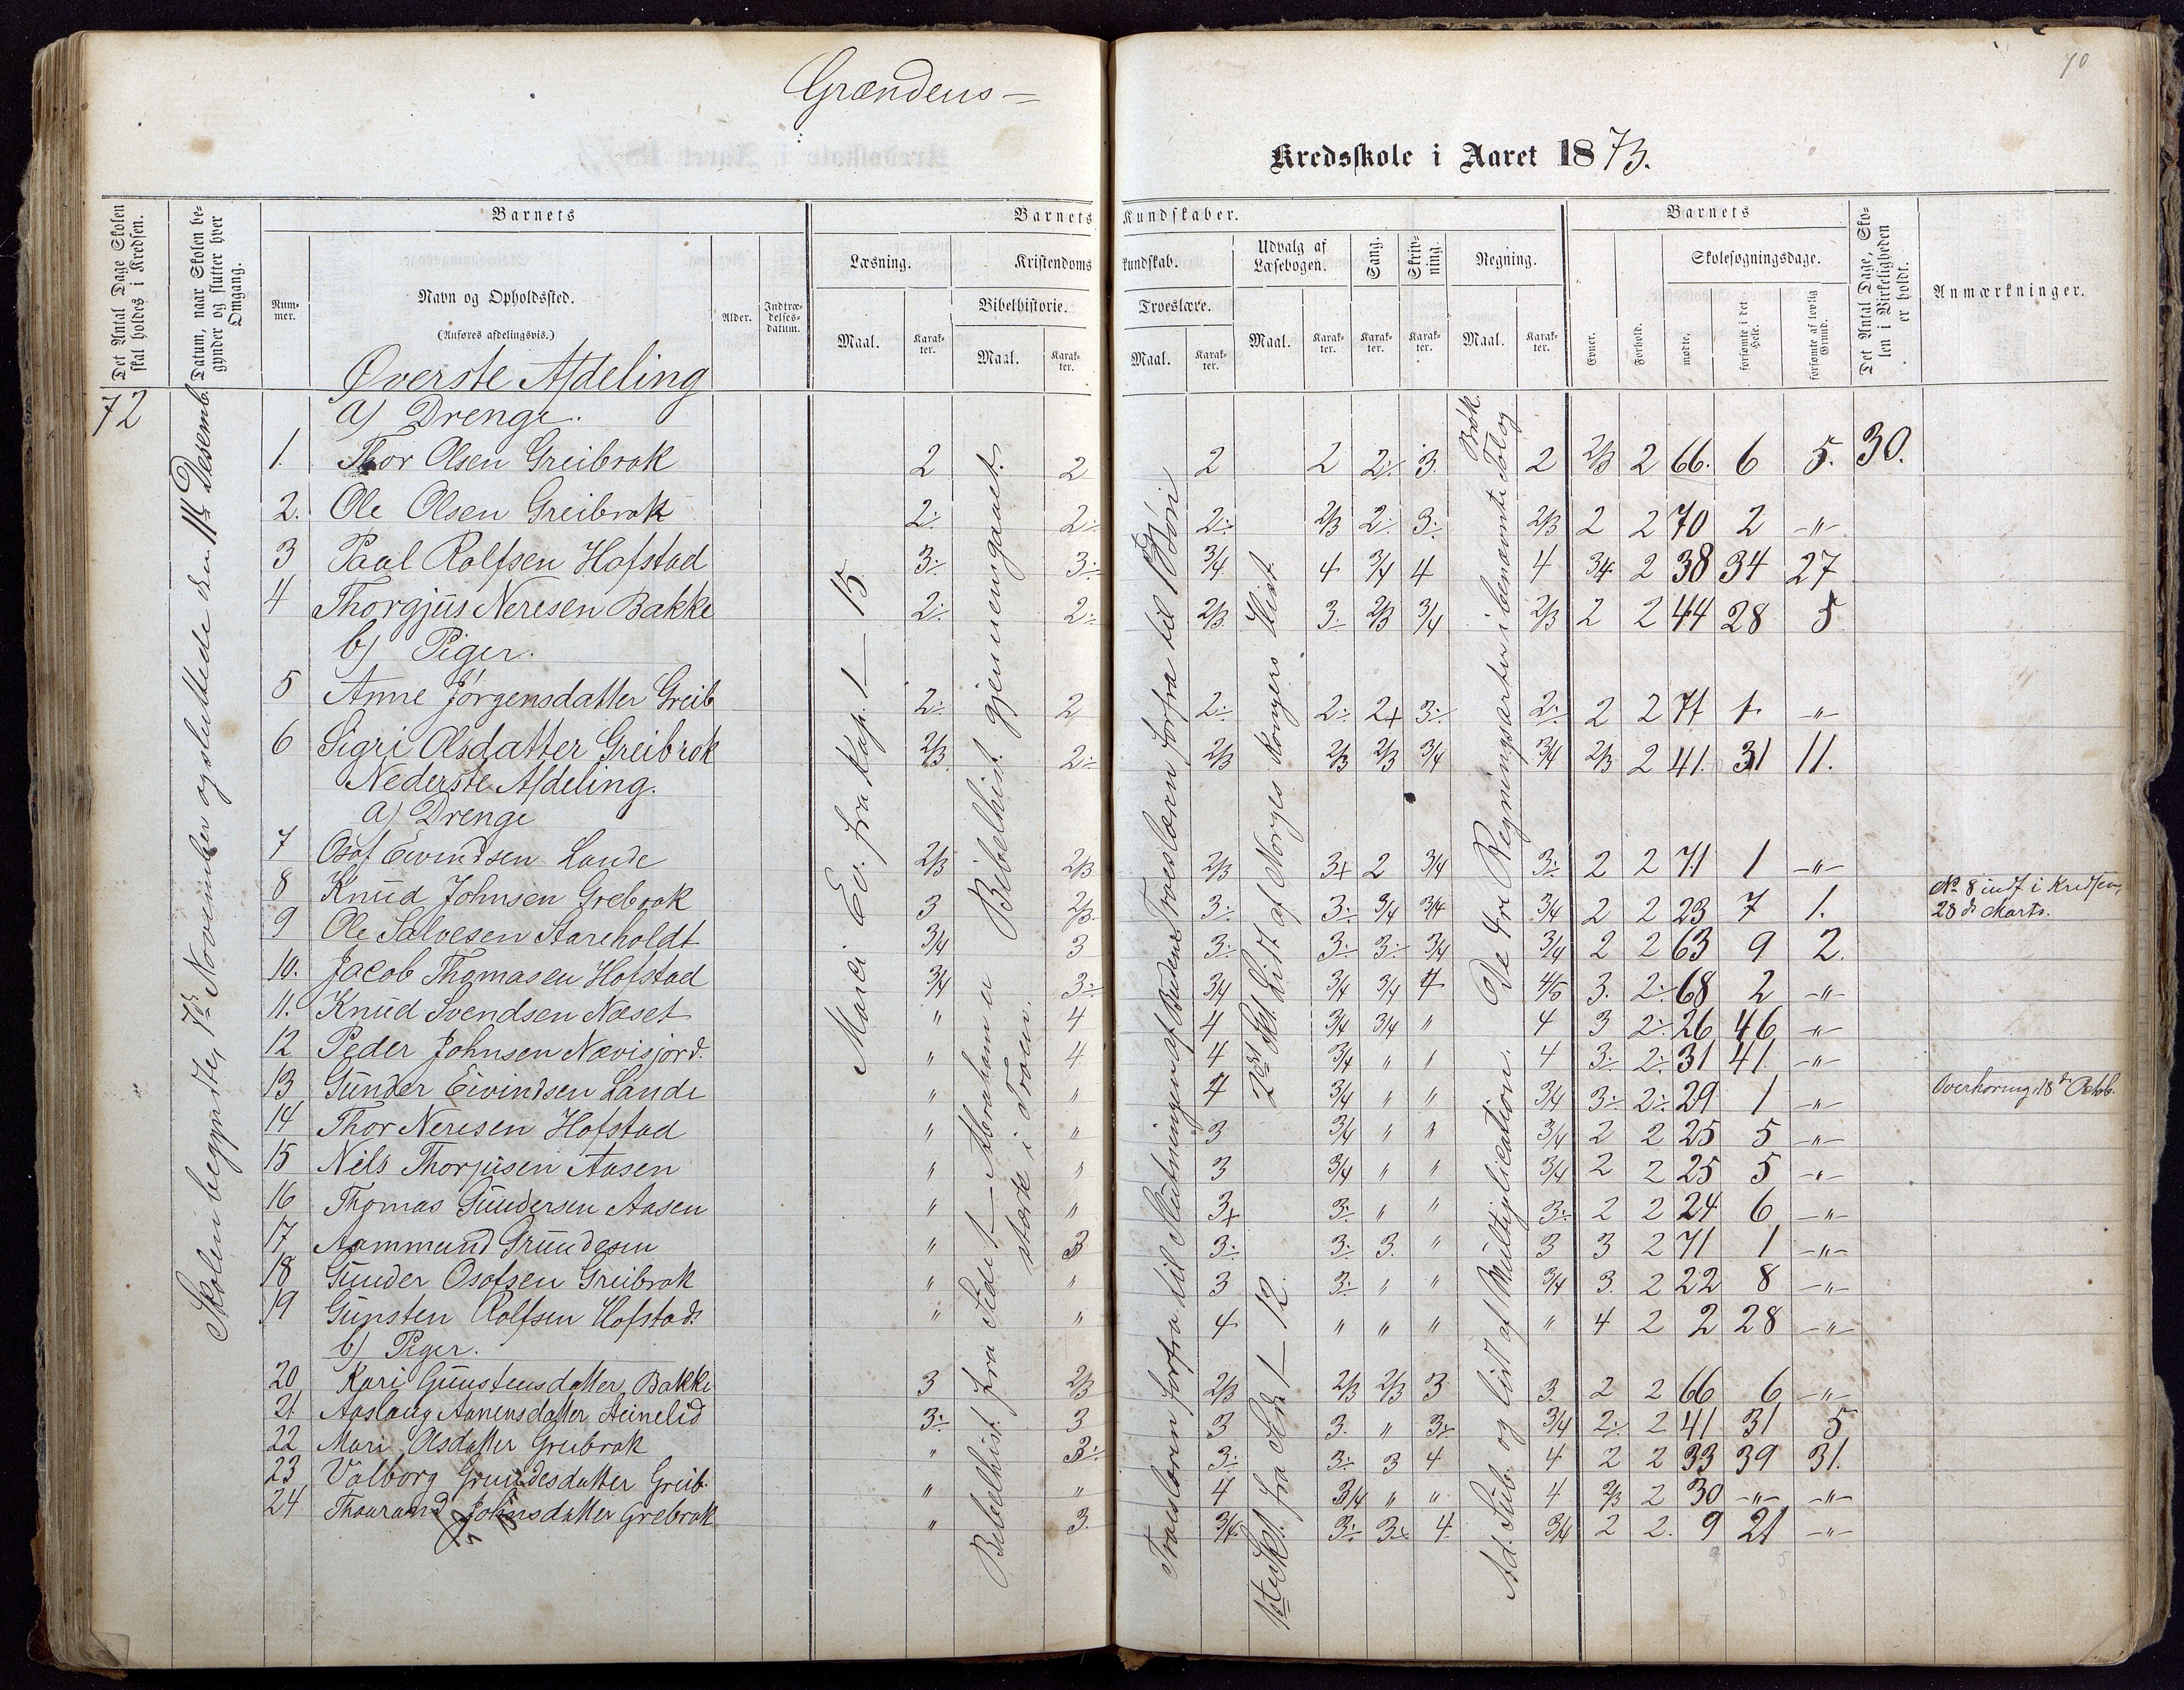 70
Grændens =
Kredsskole i Aaret 1873.
Det Antal Dage Skolen skal holdes i Kredsen.
Datum, naar Skolen begynder og slutter hver Omgang.
Barnets
Barnets
Kundskaber.
Barnets
Det Antal Dage, Skolen i Virkeligheden er holdt.
Anmærkninger.
Nummer.
Navn og Opholdssted.
(Anføres afdelingsvis.)
Alder.
Indtrædelsesdatum.
Læsning.
Kristendoms
kundskab.
Udvalg af Læsebogen.
Sang.
Skrivning.
Regning.
Evner.
Forhold.
Skolesøgningsdage.
Bibelhistorie.
Troeslære.
Maal.
Karakter.
Maal.
Karakter.
Maal.
Karakter.
Maal.
Karakter.
Karakter.
Karakter.
Maal.
Karakter.
mødte.
forsømte i det Hele.
forsømte af lovlig Grund.
72
Skolen begyndte, 17de November og sluttede den 11te Desemb.
Øverste Afdeling
a) Drenge.
1. Thor Olsen Greibrok 2 2 2 2 2÷ 3. 2 2/3 2 66. 6 5. 30.
2. Ole Olsen Greibrok 2÷ 2÷ 2÷ 2/3 2÷ 3÷ 2/3 2 2 70 2 -"-
3 Paal Rolfsen Hofstad 3÷ 3÷ 3/4 4 3/4 4 4 3/4 2 38 34 27
4 Thorgjus Neresen Bakke 2÷ 2÷ 2/3 3÷ 2/3 3/4 2/3 2 2 44 28 5
b) Piger.
5 Anne Jørgensdatter Greib 2÷ 2 2÷ 2÷ 2+ 3÷ 2÷ 2 2 71 1 -"-
6 Sigri Olsdatter Greibrok 2/3 2÷ 2/3 2/3 2/3 3/4 3/4 2/3 2 41. 31 11.
Nederste Afdeling.
a) Drenge
7 Osof Eivindsen Lande 2/3 2/3 2/3 3+ 2 3/4 3÷ 2 2 71 1 -"-
8 Knud Johnsen Grebrok 3 2/3 3÷ 3÷ 3/4 3/4 3/4 2 2 23 7 1. No 8 indf i Kredsen, 28de Marts.
9 Ole Salvesen Stareholdt 3/4 3 3÷ 3÷ 3÷ 3/4 3/4 2 2 63 9 2.
10. Jacob Thomasen Hofstad 3/4 3÷ 3/4 3/4 3/4 4 4/5 3. 2÷ 68 2 -"-
11. Knud Svendsen Næset " 4 4 3/4 3/4 " 4 3 2÷ 26 46 -"-
12 Peder Johnsen Nævisjord. " 4 4 3/4 " " 4 3÷ 2÷ 31 41. -"-
13 Gunder Eivindsen Lande " " 4 3/4 " " 3/4 3÷ 2÷ 29 1 -"- Overhøring 18de Octob.
14 Thor Neresen Hofstad " " 3 3/4 " " 3/4 2 2 25 5 -"-
15 Nils Thorjusen Aasen " " 3 3/4 " " 3/4 2 2 25 5 -"-
16 Thomas Gundersen Aasen " " 3+ 3÷ " " 3÷ 2 2 24 6 -"-
17 Aammund Grundesen " 3 3÷ 3÷ 3. " 3 3 2 71 1 -"-
18 Gunder Osofsen Greibrok " " 3 3÷ " " 3/4 3. 2 22 8 -"-
19 Gunsten Rolfsen Hofstad. " " 4 " " " " 4 2 2 28 -"-
b) Piger.
20 Kari Gunstensdatter Bakke 3 2/3 2/3 2/3 2/3 3 3. 2 2 66 6 -"-
21 Aaslaug Aanensdatter Steinelid 3÷ 3 3 3. " 3÷ 3/4 2÷ 2 41 31 5
22 Mari Olsdatter Greibrok " 3÷ 3÷ 3÷ 3 4 4 2 2 33 39 31.
23 Valborg Grundesdatter Greib. " " 4 3/4 " " 4 2/3 2 30 -"- -"-
24 Thaarand Johnsdatter Grebrok " 3. 3/4 3÷ 3+ 4. 3/4 2 2. 9 21 -"-
Marci Ev. fra Kap. 1 — 15
Bibelhist. gjennemgaaet.
Bibelhist. fra Side 1 — Abraham er stærk i Troen.
Troeslæren forfra til 1ste Bøn
Troeslæren forfra til Slutningen af Budene
2det Skt. Lidt af Norges Konges Hist.
1ste Skt. fra Side 1 — 12
De 4re Regningsarter i benævnte Tal og Brøk.
Ad. Sub. og lidt af Multiplication.